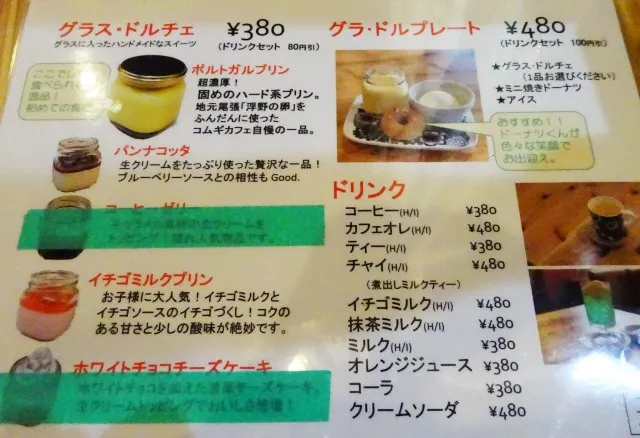 グラス・ドルチェ ¥380
グラスに入ったハンドメイドなスイーツ (ドリンクセット 80円引)
ここでし
食べられ
逸品！
初めての食
ポルトガルプリン
超濃厚！
固めのハード系プリン。
地元尾張「浮野の卵」を
ふんだんに使った
コムギカフェ自慢の一品。
パンナコッタ
生クリームをたっぷり使った贅沢な一品！
ブルーベリーソースとの相性も Good.
コーヒーゼリー
イチゴミルクプリン
お子様に大人気！イチゴミルクと
イチゴソースのイチゴづくし！コクの
ある甘さと少しの酸味が絶妙です。
ホワイトチョコチーズケーキ
ホワイトチョコを加えた濃厚チーズケーキ。
生クリームトッピングでおいしさ倍増！
グラ・ドルプレート ¥480
(ドリンクセット 100円引)
★グラス・ドルチェ
(1品お選びください)
★ミニ焼きドーナツ
★アイス
おすすめ！！
ドーナツくんが
色々な笑顔で
お出迎え。
ドリンク
コーヒー(H/I) ¥380
カフェオレ(H/I) ¥480
ティー(H/I) ¥380
チャイ(H/I) ¥480
(煮出しミルクティー)
イチゴミルク(H/I) ¥480
抹茶ミルク(H/I) ¥480
ミルク(H/I) ¥380
オレンジジュース ¥380
コーラ ¥380
クリームソーダ ¥480